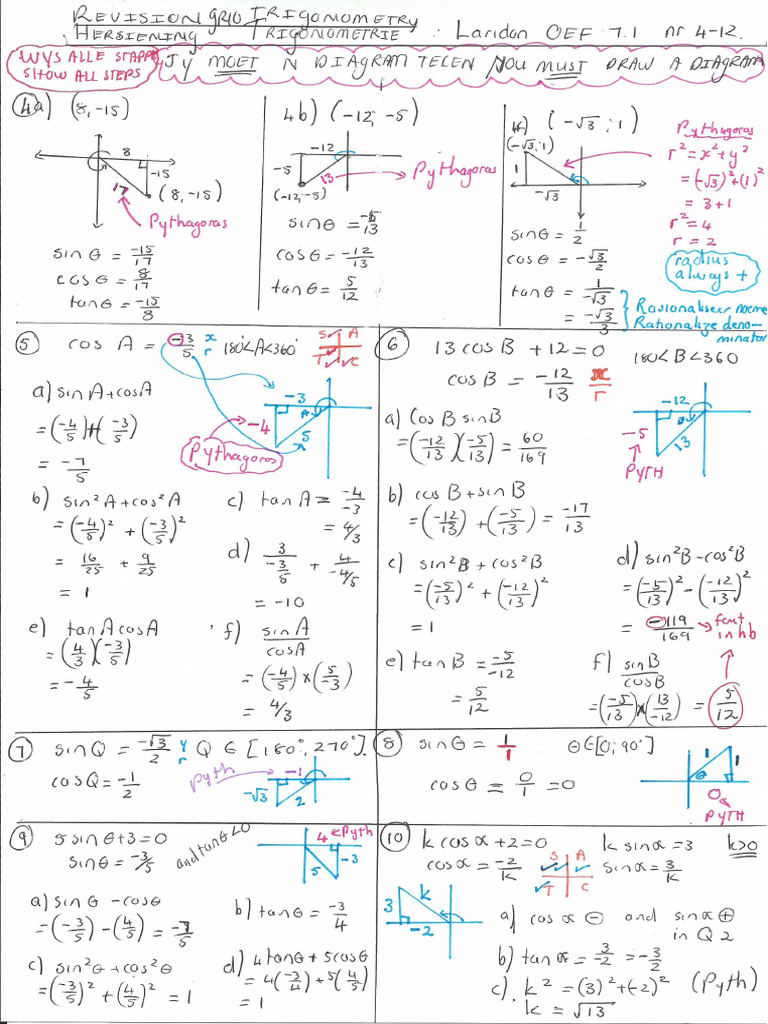 REVISION GR10 TRIGONOMETRY
HERSIENING TRIGONOMETRIE : Laridon OEF 7.1 nr 4-12.
WYS ALLE STAPPE
SHOW ALL STEPS
JY MOET N DIAGRAM TEKEN / YOU MUST DRAW A DIAGRAM
4a) (8,-15)
8
-15
17
(8,-15)
Pythagoras
sin θ = -15/17
cos θ = 8/17
tan θ = -15/8
4b) (-12; -5)
-12
-5
13
(-12;-5)
Pythagoras
sin θ = -5/13
cos θ = -12/13
tan θ = 5/12
(-√3 ; 1)
(-√3; 1)
1
-√3
sin θ = 1/2
cos θ = -√3/2
tan θ = 1/-√3
= -√3/3
Pythagoras
r² = x² + y²
= (-√3)² + (1)²
= 3 + 1
r² = 4
r = 2
radius
always +
Rasionaliseer noeme
Rationalize deno-
minator
5 cos A = -3/5 x/r 180°<A<360°
S A
T C
-3
-4
5
A
Pythagoras
a) sin A + cos A
= (-4/5) + (-3/5)
= -7/5
b) sin²A + cos²A
= (-4/5)² + (-3/5)²
= 16/25 + 9/25
= 1
c) tan A = -4/-3
= 4/3
d) 3/(-3/5) + 4/(-4/5)
= -10
e) tan A cos A
= (4/3)(-3/5)
= -4/5
f) sin A/cos A
= (-4/5) × (5/-3)
= 4/3
6 13 cos B + 12 = 0 180<B<360
cos B = -12/13 x/r
-12
-5
13
PYTH
a) Cos B sin B
= (-12/13)(-5/13) = 60/169
b) cos B + sin B
= (-12/13) + (-5/13) = -17/13
c) sin²B + cos²B
= (-5/13)² + (-12/13)²
= 1
d) sin²B - cos²B
= (-5/13)² - (-12/13)²
= -119/169 → fout
in hb
e) tan B = -5/-12
= 5/12
f) sin B/cos B
= (-5/13) × (13/-12) = 5/12
7 sin Q = -√3/2 y/r Q ∈ [180°, 270°].
cos Q = -1/2
pyth
-1
-√3
2
8 sin θ = 1/1 θ∈[0; 90°]
cos θ = 0/1 = 0
1
1
θ
0
PYTH
9 5 sin θ + 3 = 0
sin θ = -3/5
and tan θ < 0
4 ← Pyth
-3
5
a) sin θ - cos θ
= (-3/5) - (4/5) = -7/5
b) tan θ = -3/4
c) sin²θ + cos²θ
= (-3/5)² + (4/5)² = 1
d) 4 tan θ + 5 cos θ
= 4(-3/4) + 5(4/5)
= 1
10 k cos α + 2 = 0 k sin α = 3 k>0
cos α = -2/k sin α = 3/k
S A
T C
3
k
-2
a) cos α ⊖ and sin α ⊕
in Q 2
b) tan α = 3/-2 = -3/2
c). k² = (3)² + (-2)² (Pyth)
k = √13